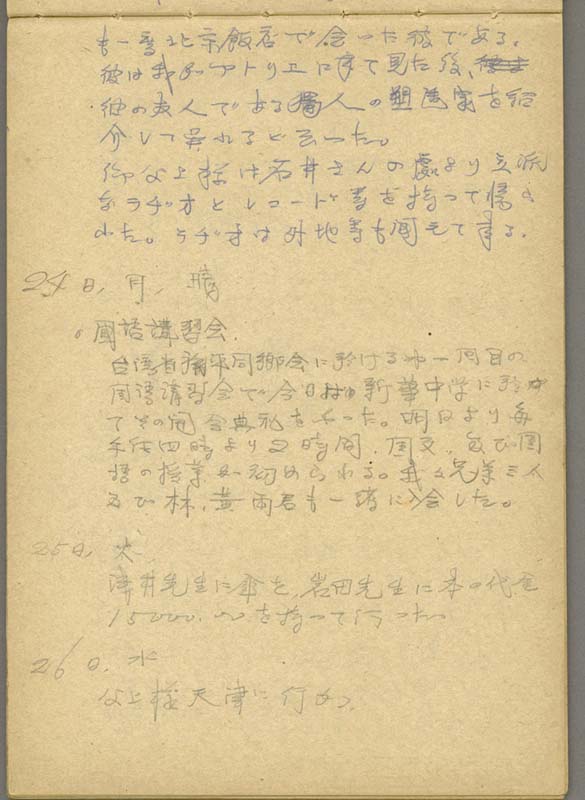 も一番北京飯店で会った彼である。
彼は我がアトリエに来て見た後、
彼の友人である獨人の塑造家を紹
介して呉れると云った。
御父上様は石井さんの處より立派
なラヂオとレコード等を持って帰ら
れた。ラヂオは外地等も聞えて来る。
24日、月、晴
。國語講習会.
台湾省旅平同郷会に於ける第一回目の
国語講習会で今日 新華中学に於か
てその開会典礼をやった。明日より毎
午后四時より2時間、国文、及び国
語の授業が初められる。我々兄弟三人
及び林、黄両君も一緒に入会した。
25日、火.
澤井先生に傘を、岩田先生に本の代金
15000.00を持って行った。
26日、水
父上様天津に行かる.